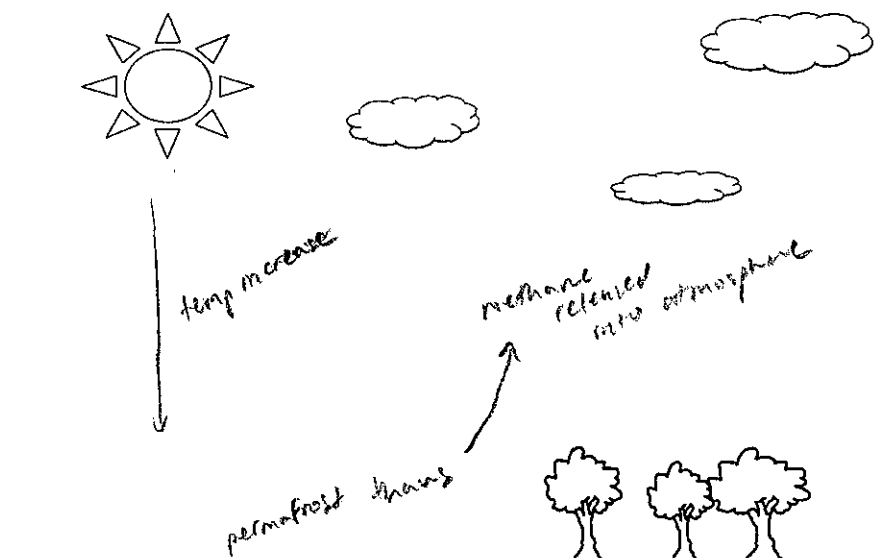 temp increase
methane
released
into atmosphere
permafrost thaws